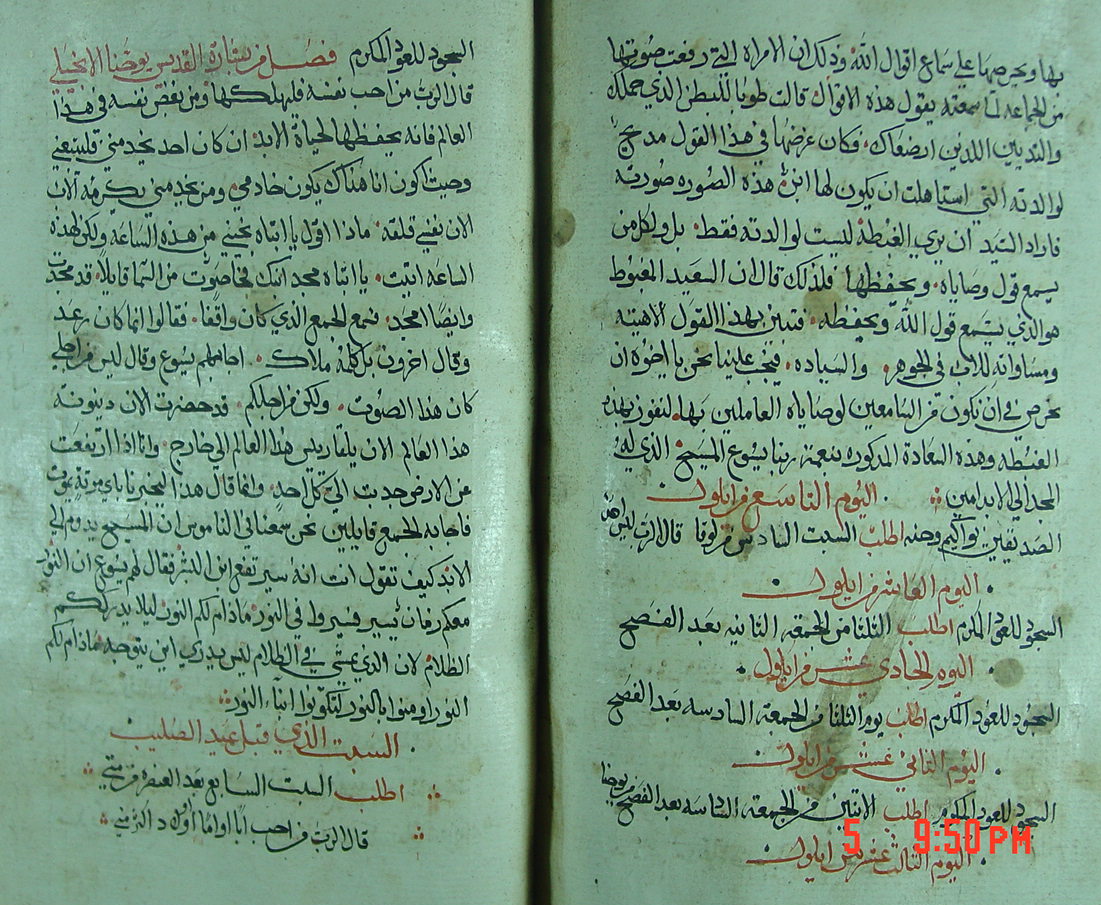 بها ويحرصها على سماع اقوال الله وذلك ان الامراه التي رفعت صوتها
من الجماعه لما سمعته يقول هذه الاقوال قالت طوبا للبطن الذي حملك
والثديين اللذين ارضعاك فكان غرضها في هذا القول مدح
لوالدته التي استاهلت ان يكون لها ابن هذه الصوره صورته
فاراد السيد ان يري الغبطة ليست لوالدته فقط بل ولكل من
يسمع قول وصاياه ويحفظها فلذلك قال ان السعيد المغبوط
هو الذي يسمع قول الله ويحفظه فتبين بهذا القول لاهيته
ومساواته للاب في الجوهر والسياده فيجب علينا نحن يا اخوة ان
نحرص في ان نكون من السامعين لوصاياه العاملين بها لنفوز بهذه
الغبطه وهذه السعادة المذكوره بنعمة ربنا يسوع المسيح الذي له
المجد الي الابد امين اليوم التاسع من ايلول
الصديقين يواكيم وحنه اطلب السبت السادس من لوقا قال الرب ليس احد
اليوم العاشر من ايلول
السجود للعود المكرم اطلب الثلثا من الجمعة الثانيه بعد الفصح
اليوم الحادي عشر من ايلول
السجود للعود المكرم اطلب يوم الثلثا من الجمعة السادسه بعد الفصح
اليوم الثاني عشر من ايلول
السجود للعود المكرم اطلب الاثنين من الجمعة السادسه بعد الفصح من يوحنا
اليوم الثالث عشر من ايلول
5 9:50 PM
السجود للعود المكرم فصل من بشارة القديس يوحنا الانجيلي
قال الرب من احب نفسه فليهلكها ومن بغض نفسه في هذا
العالم فانه يحفظها لحياة الابد ان كان احد يخدمني فليتبعني
وحيث اكون انا هناك يكون خادمي ومن يخدمني يكرمه الاب
الان نفسي قلقة ماذا اقول يا ابتاه نجني من هذه الساعه ولكن لهذه
الساعه اتيت يا ابتاه مجد ابنك فجا صوت من السما قايلا قد مجدت
وايضا امجد فسمع الجمع الذي كان واقفا فقالوا انما كان رعد
وقال اخرون بل كلمه ملاك اجابهم يسوع وقال ليس من اجلي
كان هذا الصوت ولكن من اجلكم قد حضرت الان دينونة
هذا العالم الان يلقا ريس هذا العالم الي خارج وانا اذا ارتفعت
عن الارض جدبت الي كل احد وانما قال هذا ليخبر باي ميتة يموت
فاجابه الجمع قايلين نحن سمعنا في الناموس ان المسيح يدوم الي
الابد كيف تقول انت انه سيرتفع ابن البشر فقال لهم يسوع ان النور
معكم زمان يسير فسيروا في النور ماذام لكم النور ليلا يدرككم
الظلام لان الذي يمشي في الظلام ليس يدري اين يتوجه ماذام لكم
النور اومنوا بالنور لتكونوا ابنا النور
السبت الذي قبل عيد الصليب
اطلب السبت السابع بعد العنصره من متي
قال الرب من احب ابا او اما